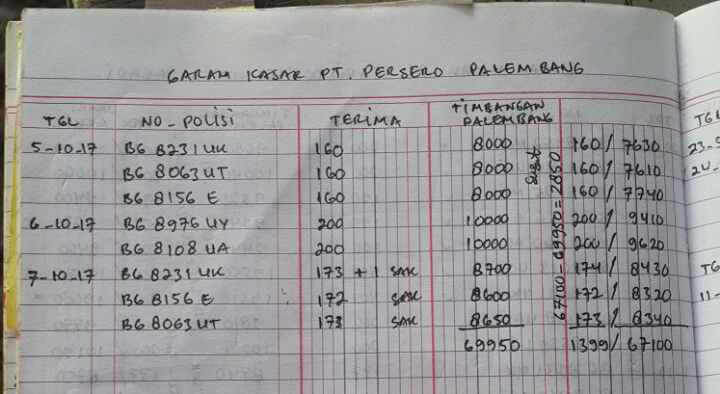 GARAM KASAR PT. PERSERO PALEMBANG
TGL NO-POLISI TERIMA TIMBANGAN PALEMBANG
5-10-17 BG 8231 UK 160 8000 160/7630
BG 8063 UT 160 8000 160/7610
BG 8156 E 160 8000 160/7740
6-10-17 BG 8976 UY 200 10000 200/9410
BG 8108 UA 200 10000 200/9620
7-10-17 BG 8231 UK 173 + 1 SAK 8700 174/8430
BG 8156 E 172 SAK 8600 172/8320
BG 8063 UT 173 SAK 8650 173/8340
69950 1399/67100
67100-69950=2850